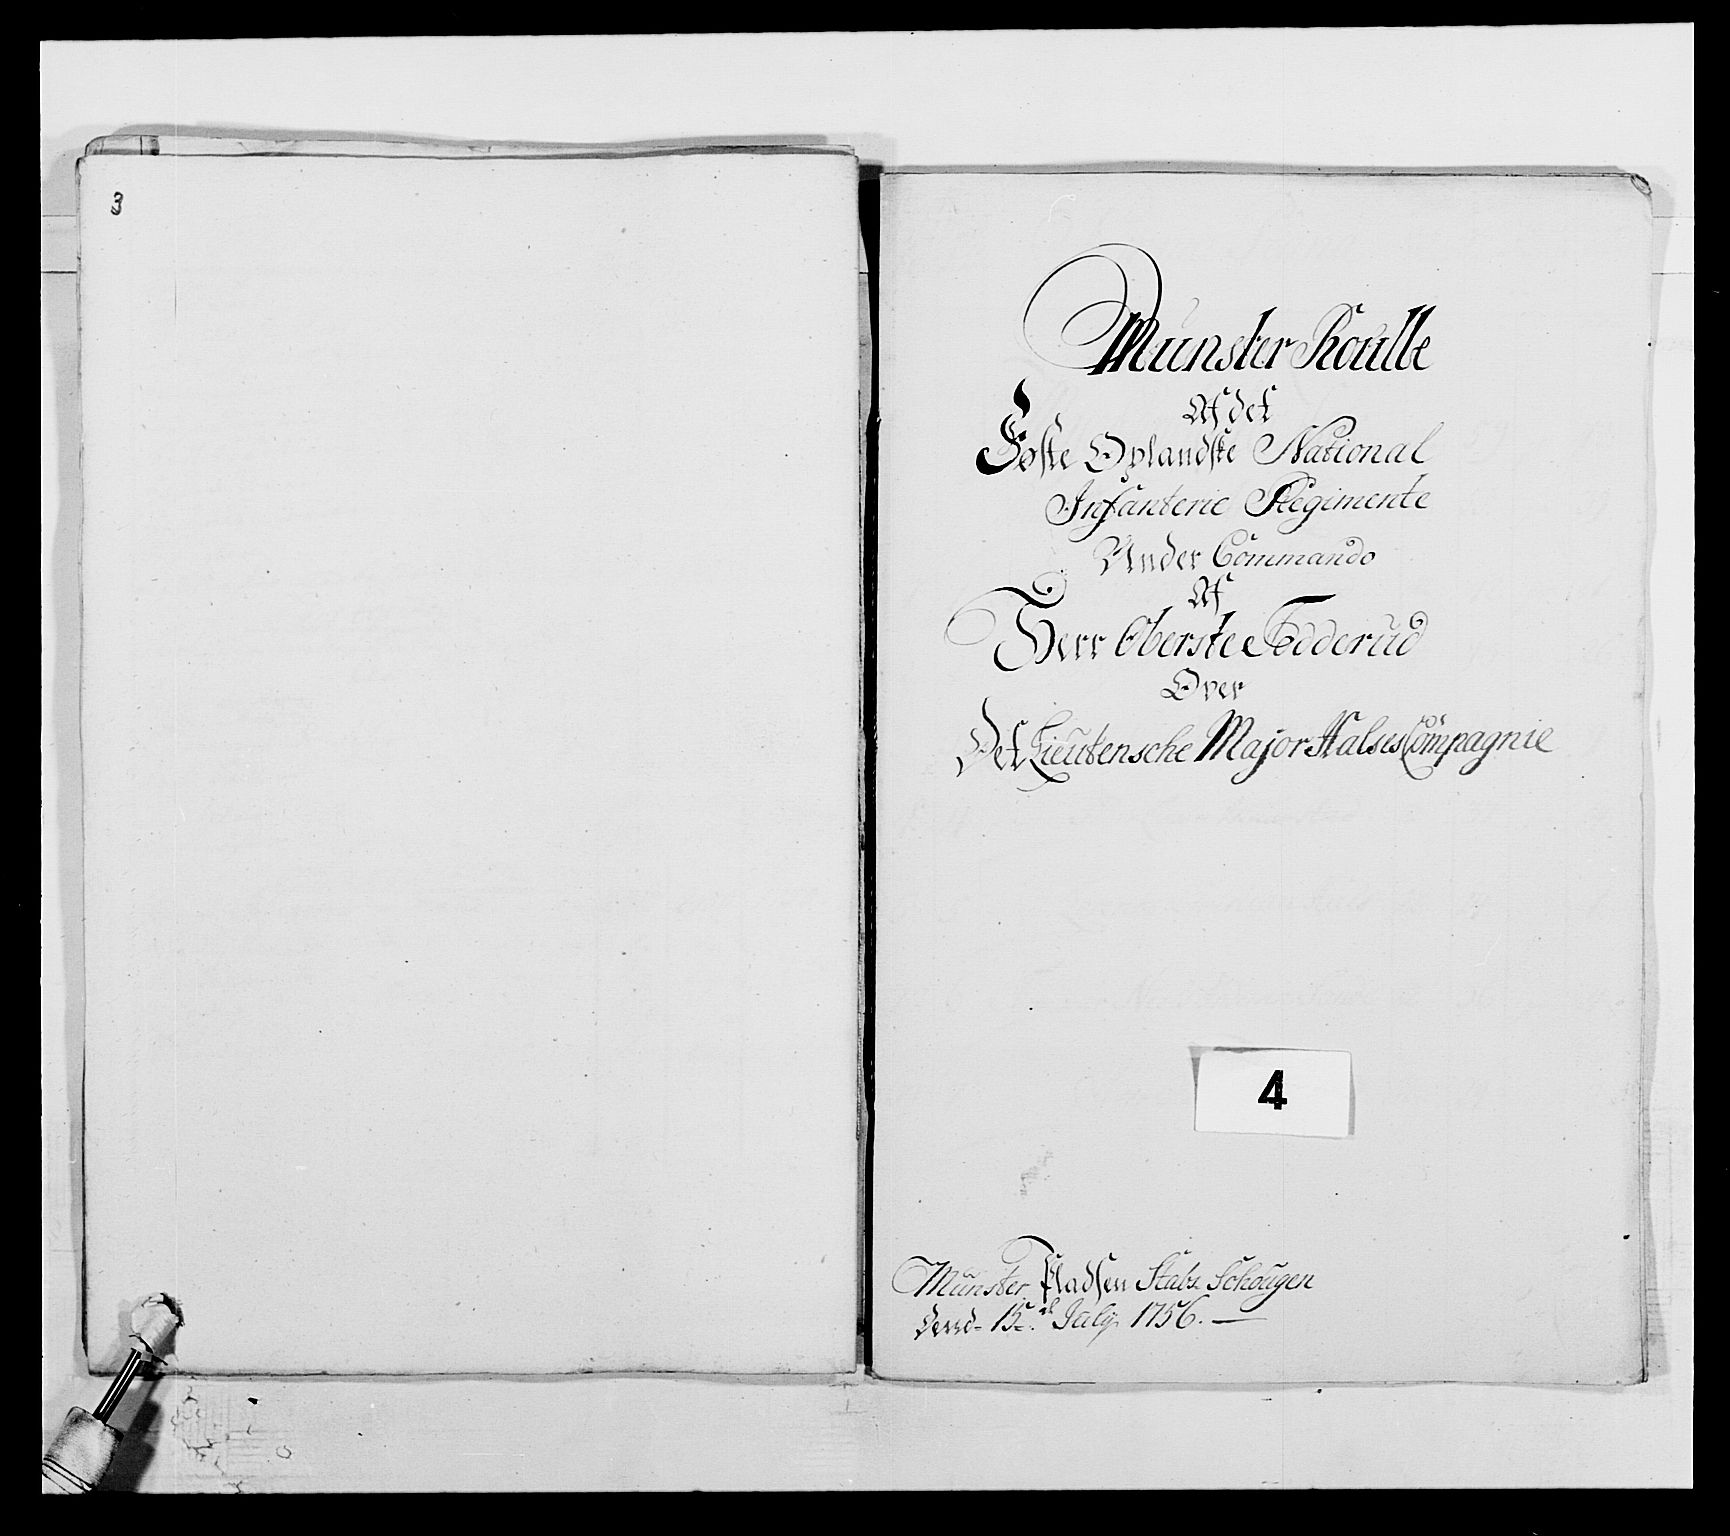 3
Munster Roulle
Af det
Føste Oplandske National
Infanterie Regimente
Under Commando
Af
Herr Oberste Tødderud
Over
Det Lieutensche Major Halses Compagnie
4
Munster Pladsen Stabz Schougen
dend 15.de July 1756.